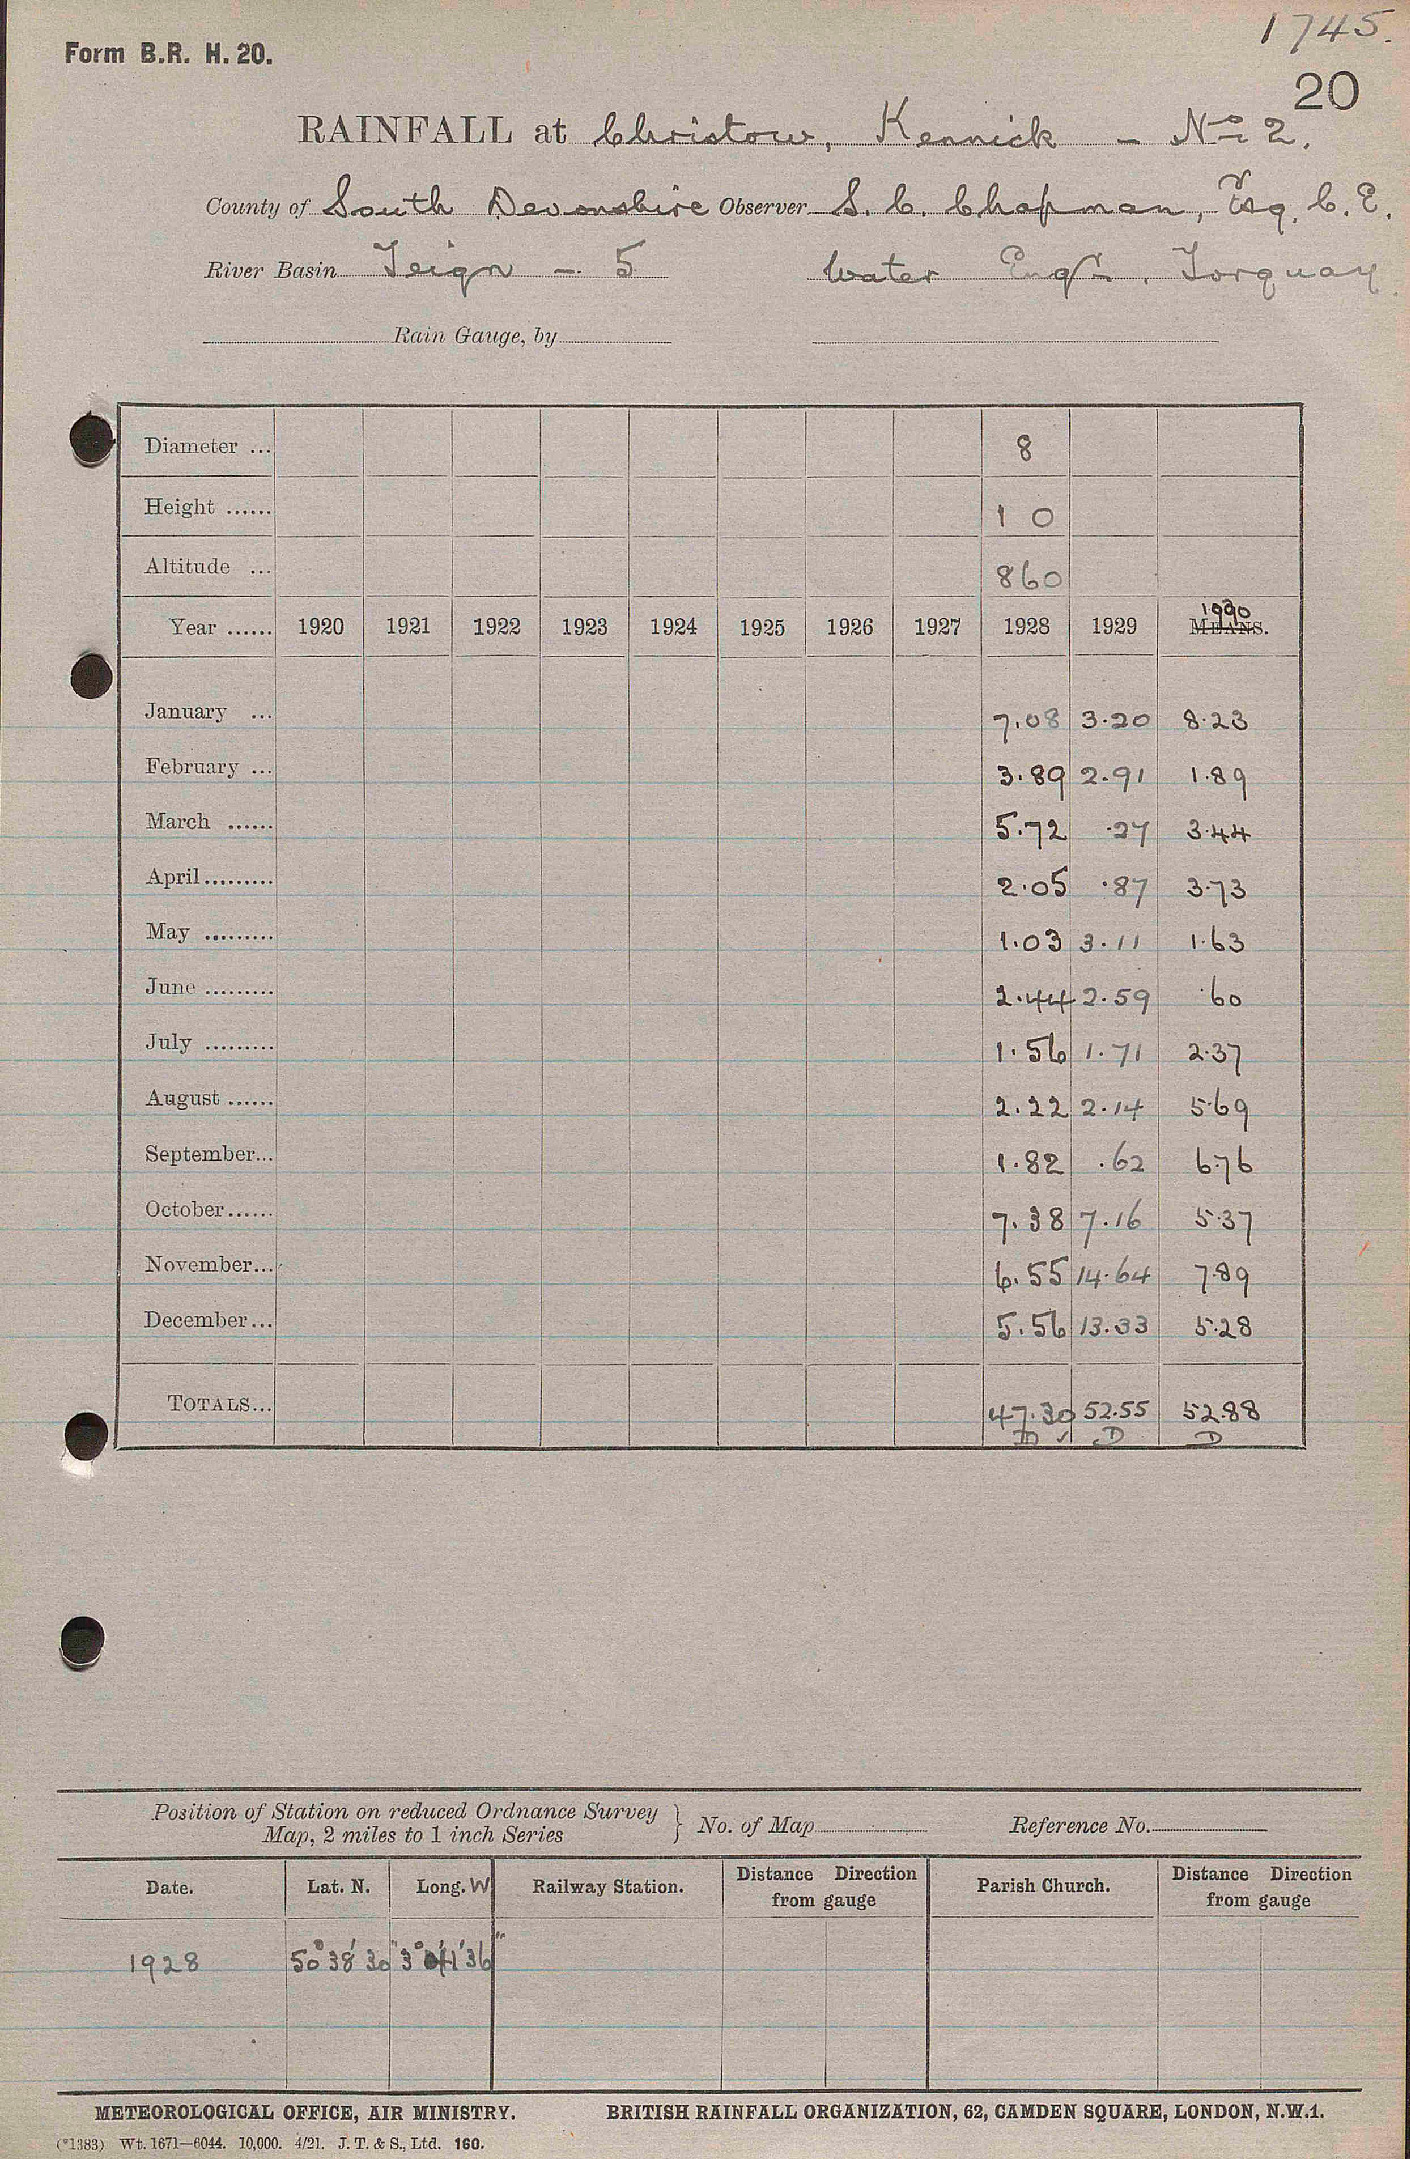 1745.
Form B.R. H. 20.
20
RAINFALL at Christow, Kennick - No 2.
County of South Devonshire Observer S. C. Chapman, Esq. C. E.
River Basin Teign - 5 Water Engr. Torquay
Rain Gauge, by
Diameter ... 8
Height ...... 1 0
Altitude ... 860
Year ...... 1920 1921 1922 1923 1924 1925 1926 1927 1928 1929 1930 MEANS.
January ... 7.08 3.20 8.23
February ... 3.89 2.91 1.89
March ...... 5.72 .27 3.44
April ......... 2.05 .87 3.73
May ......... 1.03 3.11 1.63
June ......... 2.44 2.59 .60
July ......... 1.56 1.71 2.37
August ...... 2.22 2.14 5.69
September... 1.82 .62 6.76
October...... 7.38 7.16 5.37
November... 6.55 14.64 7.89
December... 5.56 13.33 5.28
TOTALS... 47.30 52.55 52.88
D ✓ D D
Position of Station on reduced Ordnance Survey Map, 2 miles to 1 inch Series } No. of Map Reference No.
Date. Lat. N. Long. W Railway Station. Distance Direction from gauge Parish Church. Distance Direction from gauge
1928 50° 38' 30" 3° 41' 36"
METEOROLOGICAL OFFICE, AIR MINISTRY. BRITISH RAINFALL ORGANIZATION, 62, CAMDEN SQUARE, LONDON, N.W.1.
(*1383) Wt. 1671—6044. 10,000. 4/21. J. T. & S., Ltd. 160.